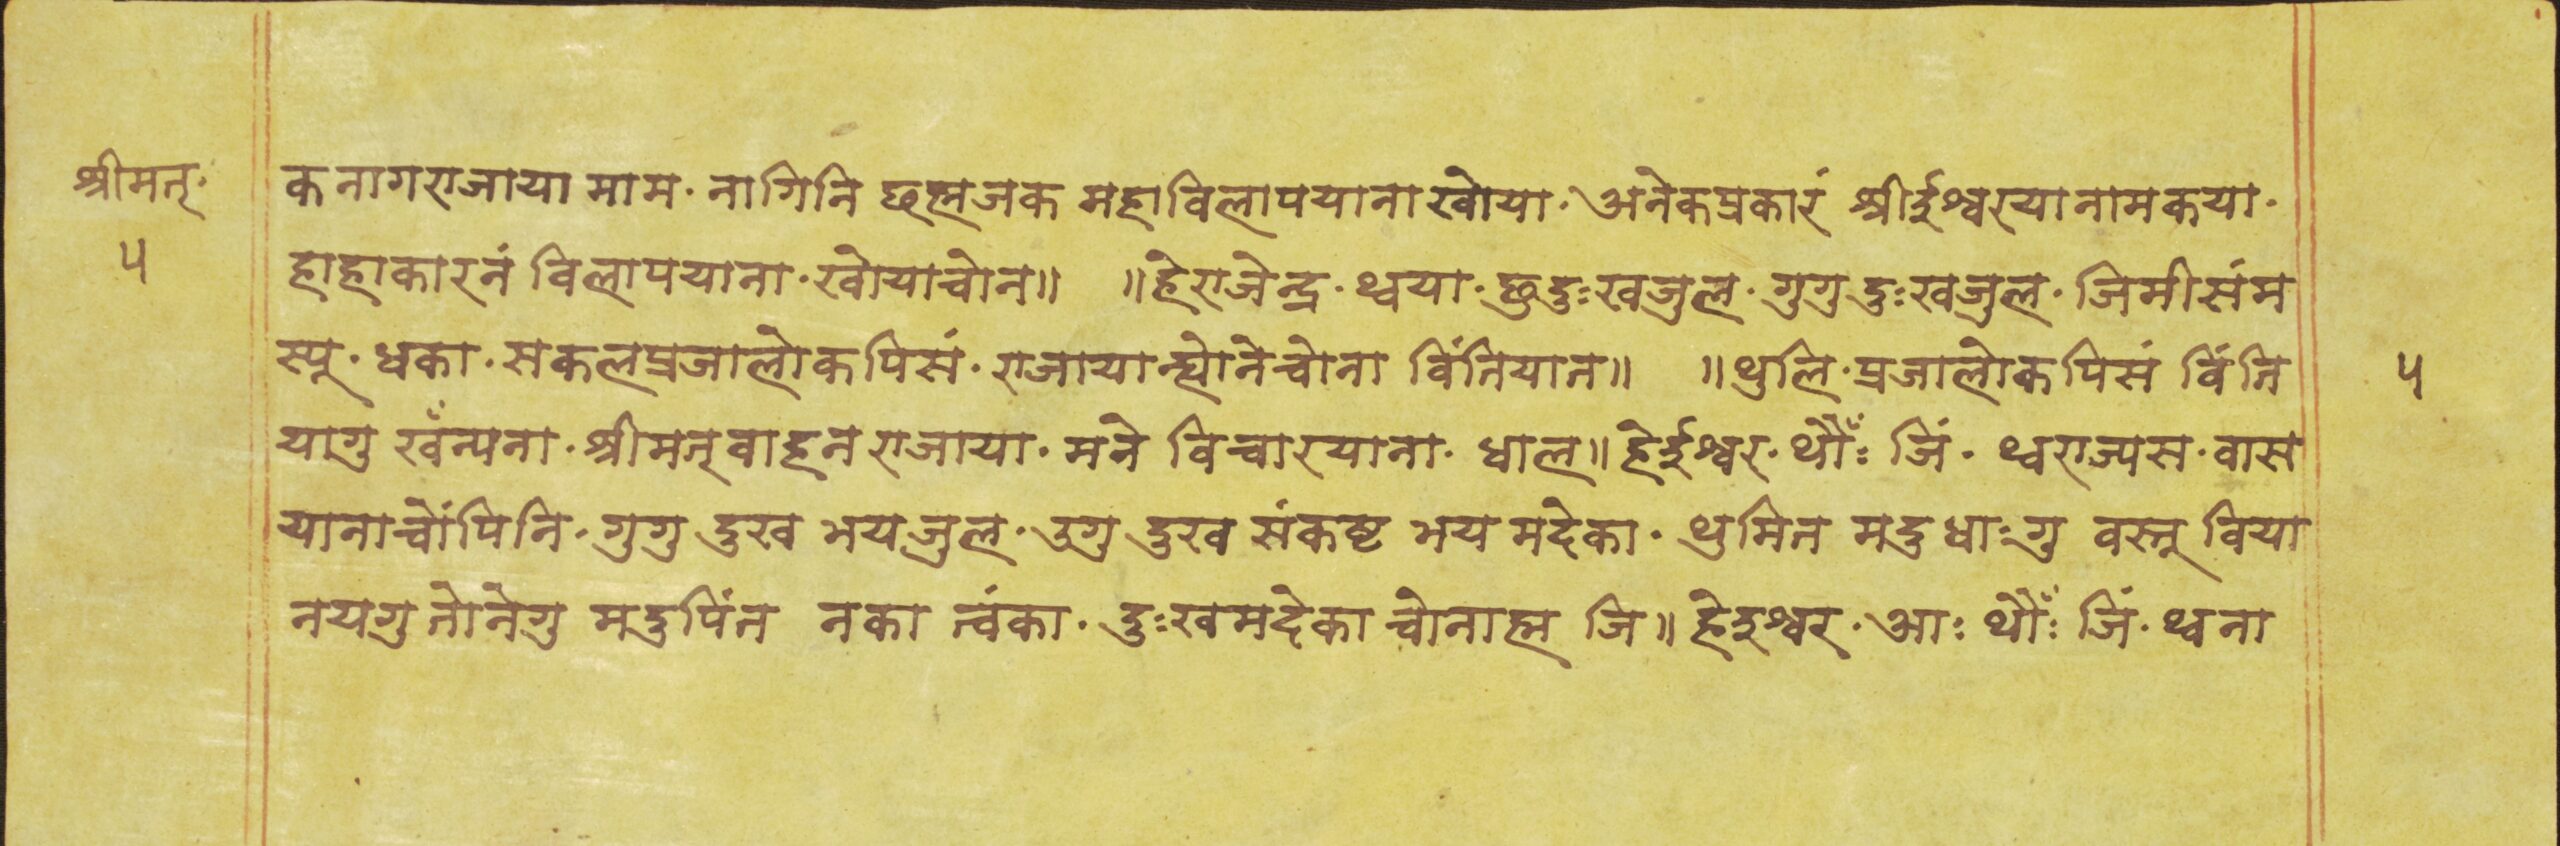 श्रीमत्·
५
क नागराजाया माम· नागिनि छह्मजक महाविलापयाना खोया· अनेकप्रकारं श्रीईश्वरया नामकया·
हाहाकारनं विलापयाना· खोयाचोन॥ ॥हेराजेन्द्र· थ्वया· छुदुःखजुल· गुगु दुःखजुल· जिमीसंम
स्यू· धका· सकलप्रजालोकपिसं· राजायान्ह्योनेचोना विंनियात॥ ॥थुलि· प्रजालोकपिसं विंनि
५
यागु खँन्यना· श्रीमत्वाहन राजाया· मने विचारयाना· धाल॥हेईश्वर· थौँः जिं· थ्वराज्यस· वास
यानाचोंपिनि· गुगु दुख भयजुल· उगु दुख संकष्ट भय मदेका· थुमित मदुधाःगु वस्तू विया
नयगु तोनेगु मदुपिंत नका त्वंका· दुःखमदेका चोनाह्म जि॥ हेइश्वर· आः थौँः जिं· थ्वना